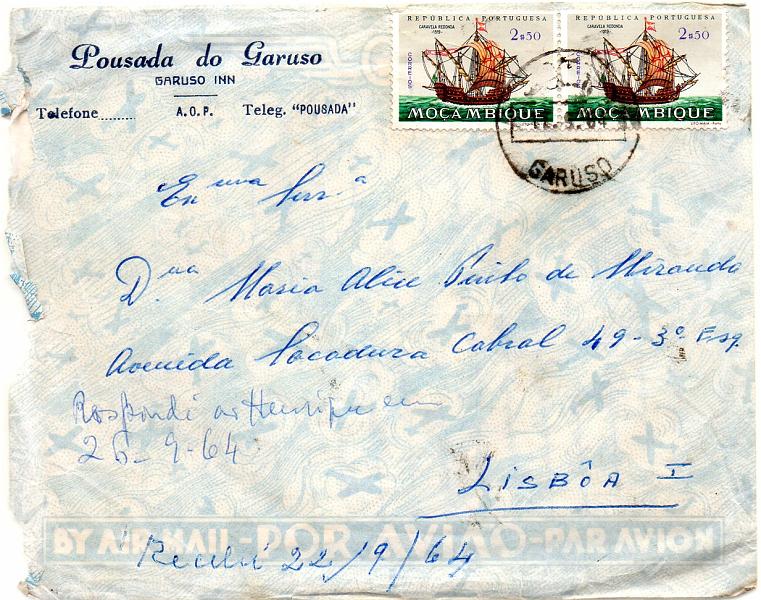 Pousada do Garuso
GARUSO INN
Telefone........ A.O.P. Teleg. "POUSADA"
REPÚBLICA PORTUGUESA
CARAVELA REDONDA
2$50
MOÇAMBIQUE
REPÚBLICA PORTUGUESA
CARAVELA REDONDA
2$50
MOÇAMBIQUE
GARUSO
Exma Senra
D.na Maria Alice Pinto de Miranda
Avenida Sacadura Cabral 49-3º Esq.
Respondi ao Henrique em
26-9-64
LISBÔA I
BY AIR MAIL-POR AVIÃO-PAR AVION
Recebi 22/9/64